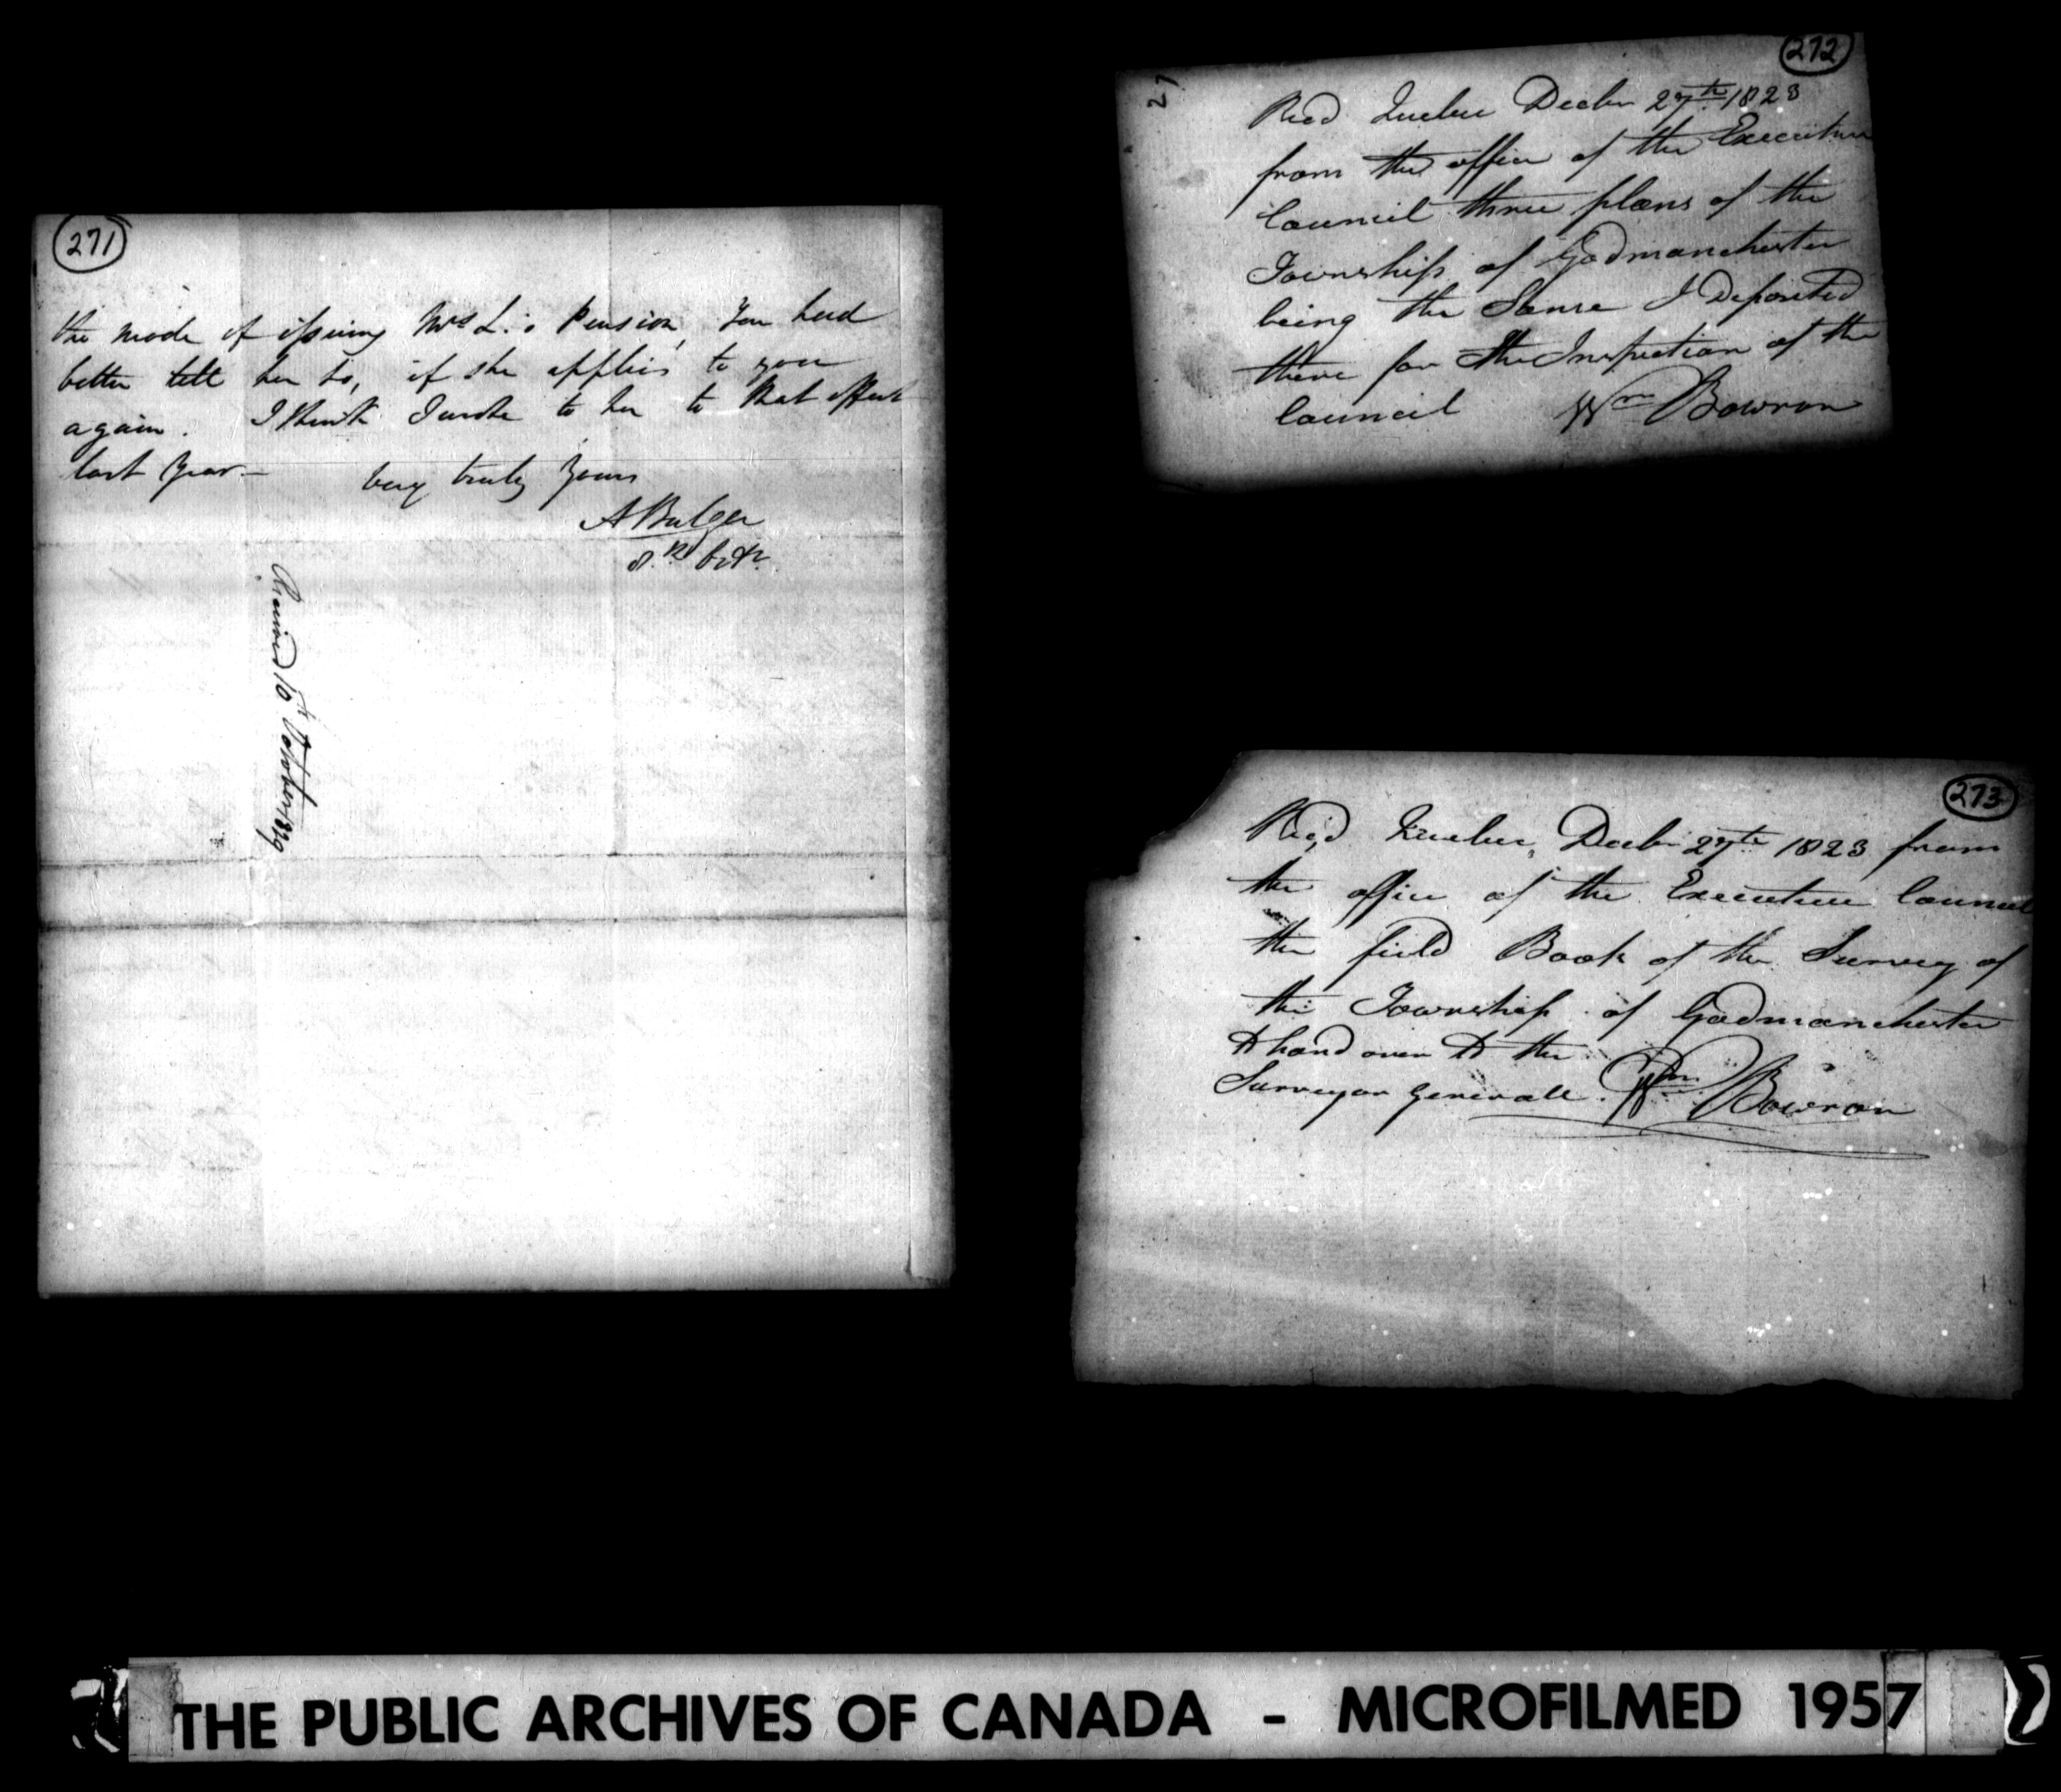 271
the mode of issuing Mrs L.'s Pension, You had
better tell her so, if she applies to you
again. I think I wrote to her to that effect
last Year— Very truly Yours
A Bulger
Received 10th October 1829
272
27
Recd Quebec Decbr 27th 1823
from the office of the Executive
Council three plans of the
Township of Godmanchester
being the Same I Deposited
there for the Inspection of the
Council Wm Bowron
273
Recd Quebec, Decbr 27th 1823 from
the office of the Executive Council
the field Book of the Survey of
the Township of Godmanchester
to hand over to the
Surveyor Generall. Wm Bowron
THE PUBLIC ARCHIVES OF CANADA - MICROFILMED 1957